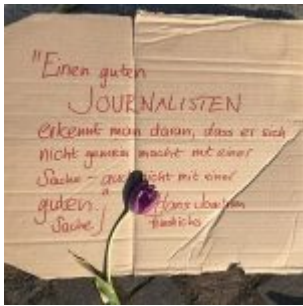 "Einen guten
JOURNALISTEN
erkennt man daran, dass er sich
nicht gemein macht mit einer
Sache – auch nicht mit einer
guten Hans Joachim
Sache." Friedrichs